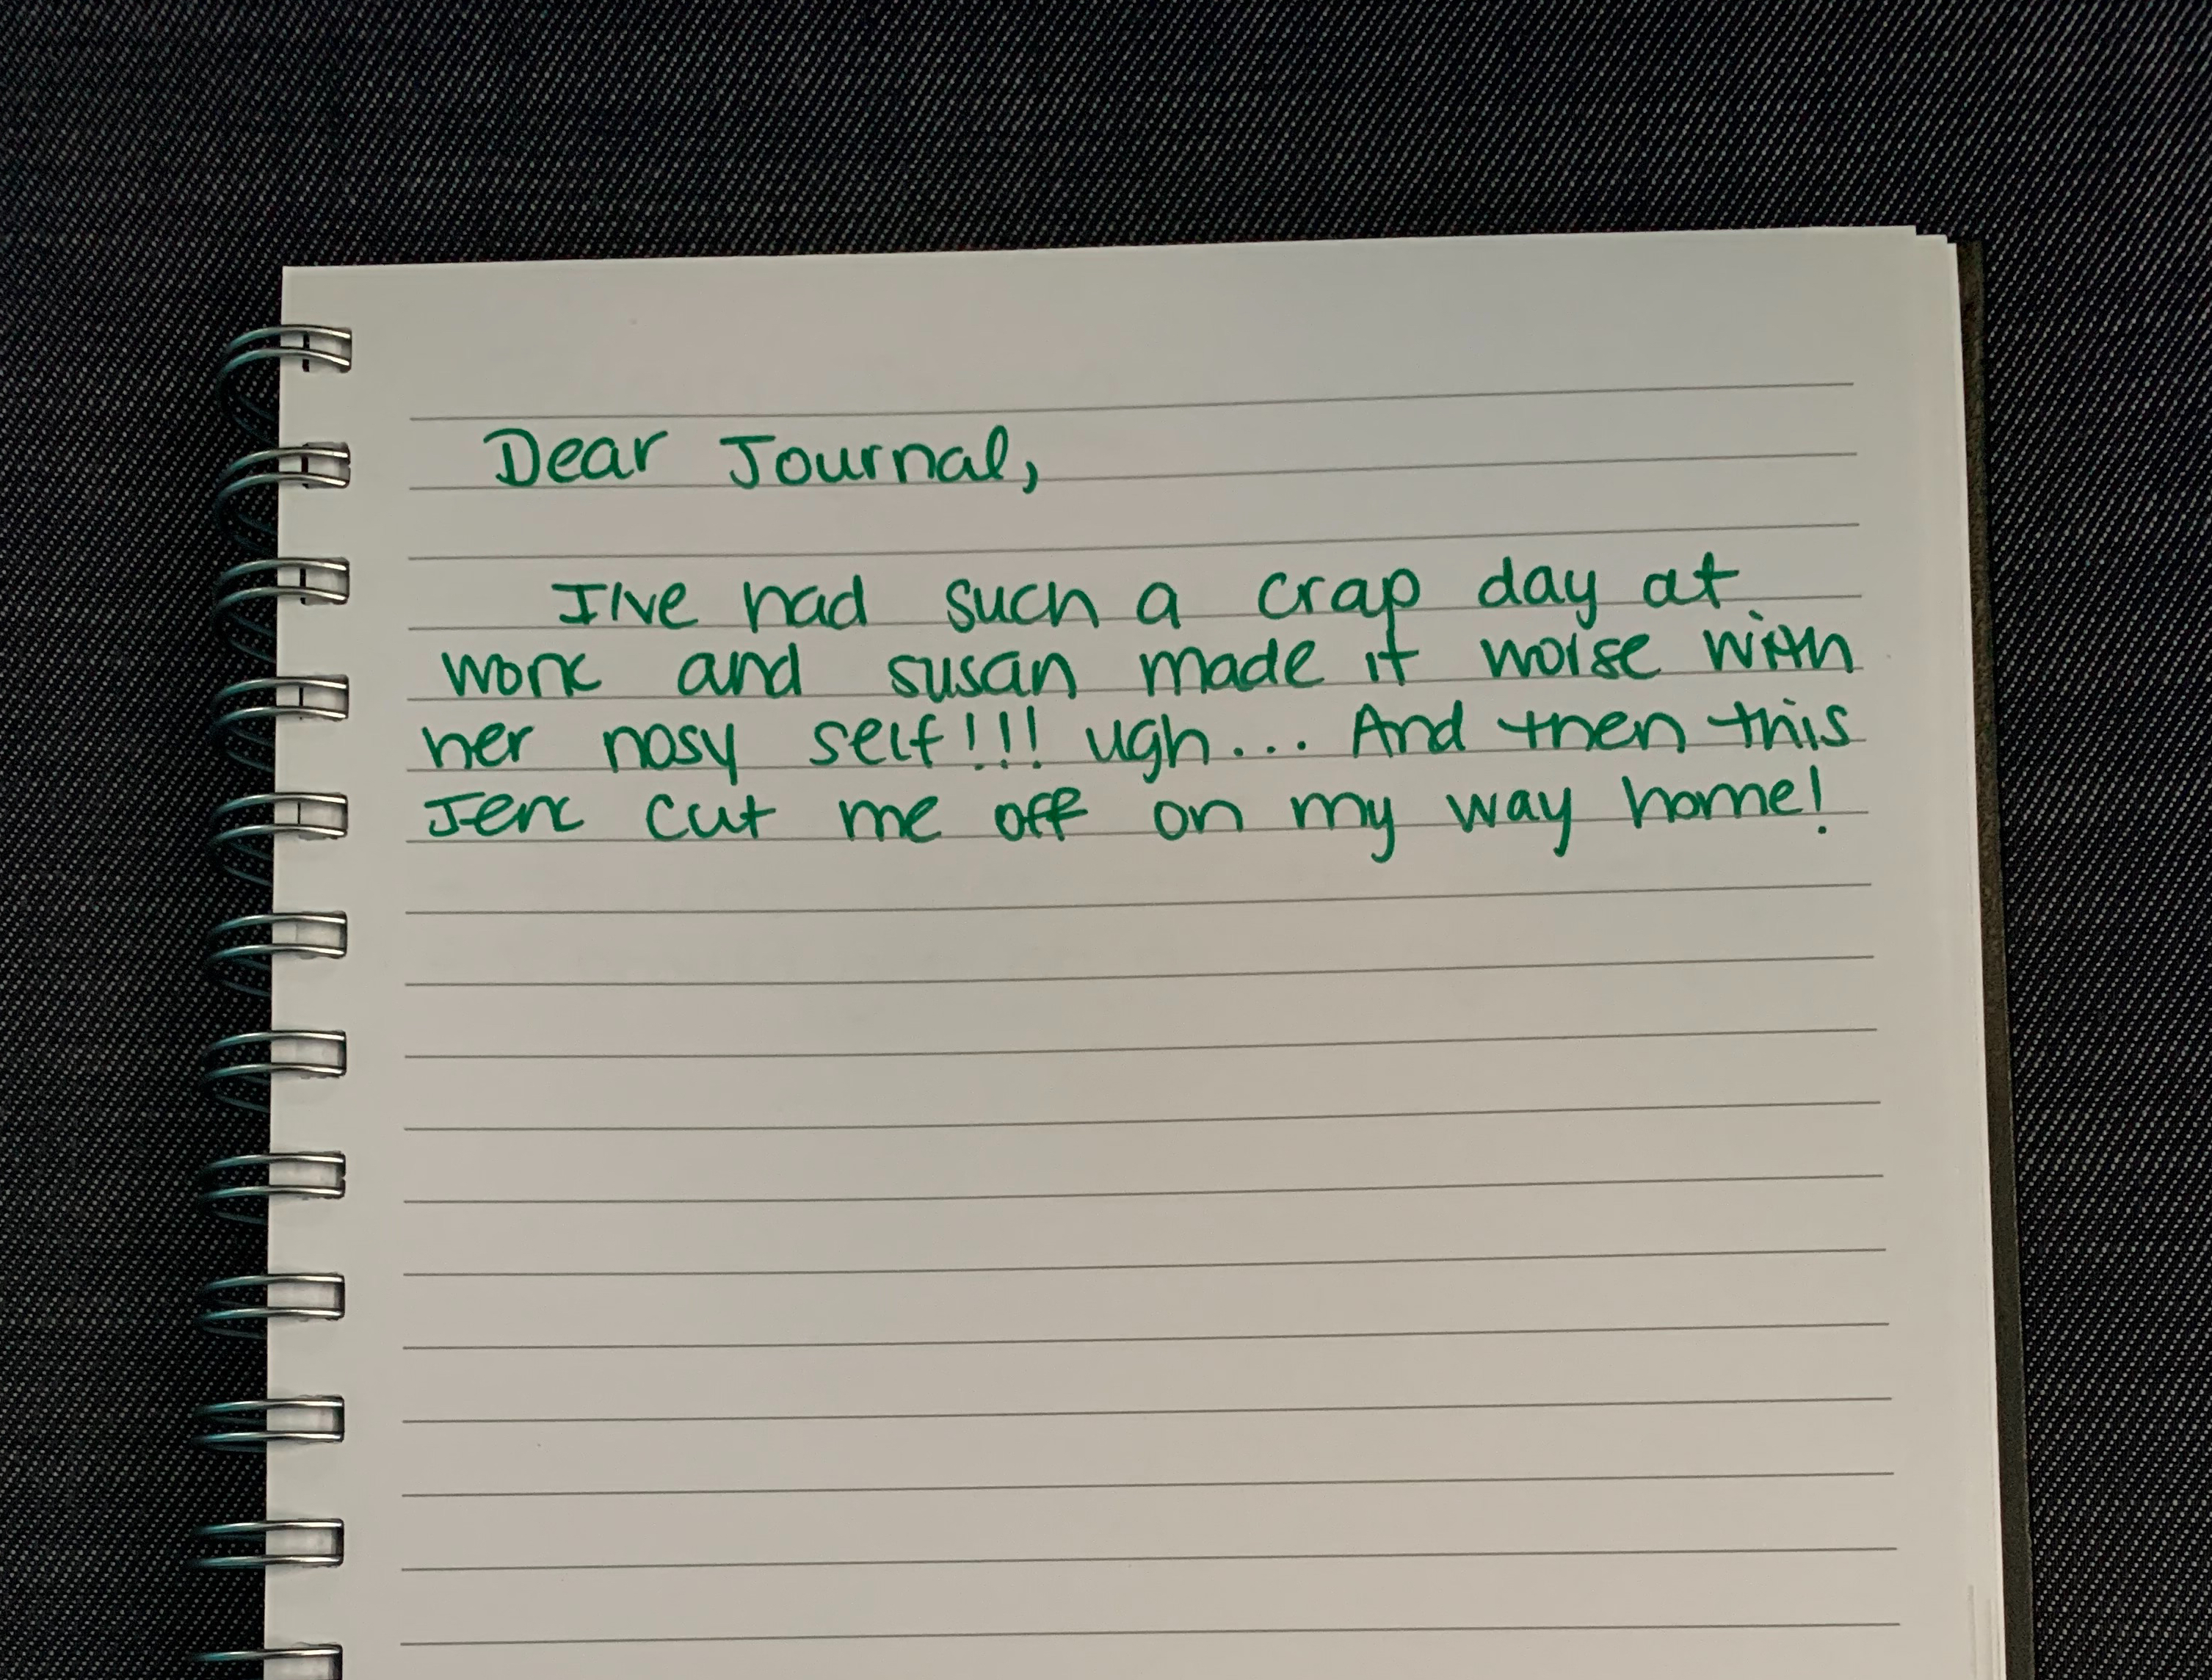 Dear Journal,
I've had such a crap day at
work and susan made it worse with
her nosy self!!! ugh... And then this
Jerk cut me off on my way home!